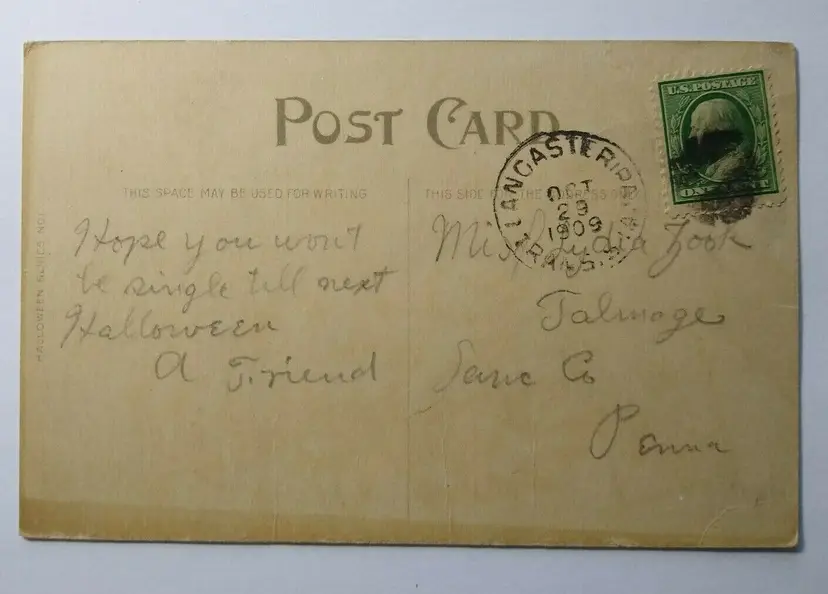 POST CARD
U.S. POSTAGE
ONE CENT
LANCASTER, PA.
OCT
29
1909
TRANS.
THIS SPACE MAY BE USED FOR WRITING
THIS SIDE FOR THE ADDRESS
HALLOWEEN SERIES NO1
Hope you won't
be single till next
Halloween
A Friend
Miss Lydia Zook
Talmage
Lanc Co
Penna